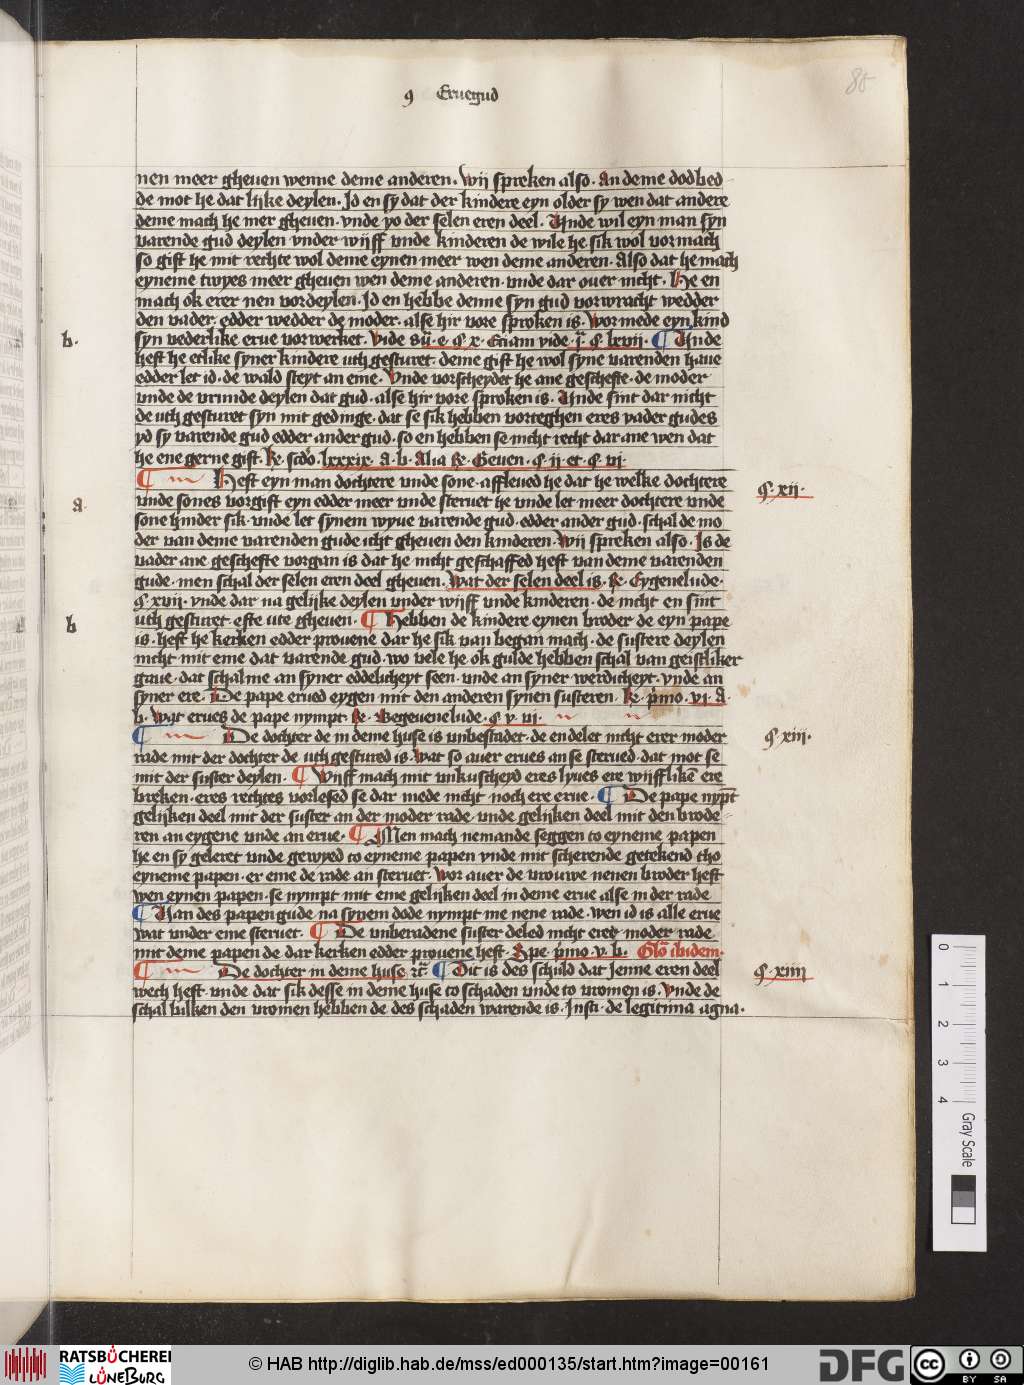 85
9 Eruegud
nen meer gheuen wenne deme anderen. Wij spreken also. An deme dodbed
de mot he dat lijke deylen. Id en sy dat der kindere eyn older sy wen dat andere
deme mach he mer gheuen. vnde yo der selen eren deel. Unde wil eyn man syn
varende gud deylen vnder wijff vnde kinderen de wile he sik wol vormach
so gift he mit rechte wol deme eynen meer wen deme anderen. Also dat he mach
eyneme twyes meer gheuen wen deme anderen. vnde dar ouer nicht. He en
mach ok erer nen vordeylen. Id en hebbe denne syn gud vorwracht wedder
den vader. edder wedder de moder. alse hir vore sproken is. Wor mede eyn kind
b.
syn vederlike erue vorwerket. Vide e. §. x. Eciam vide §. lxvij. ¶ Unde
heft he etlike syner kindere uth gesturet. deme gift he wol syne varenden haue
edder let id. de wald steyt an eme. Vnde vorscheydet he ane geschefte. de moder
vnde de vrunde deylen dat gud. alse hir vore sproken is. Unde sint dar nicht
de uth gesturet syn mit gedinge. dat se sik hebben vorteghen eres vader gudes
yd sy varende gud edder ander gud. so en hebben se nicht recht dar ane wen dat
he ene gerne gift. Re. scdo. lxxxix. a. b. Alia Re. Geuen. §. ij et. §. vi.
¶ Heft eyn man dochtere vnde sone. affleued he dat he welke dochtere
§. xij.
a.
vnde sones vorgift eyn edder meer vnde steruet he vnde let meer dochtere vnde
sone hinder sik. vnde let synem wyue varende gud. edder ander gud. schal de mo
der van deme varenden gude icht gheuen den kinderen. Wij spreken also. Is de
vader ane geschefte vorgan is dat he nicht geschaffed heft van deme varenden
gude. men schal der selen eren deel gheuen. Wat der selen deel is. Re. Eygenelude.
§. xvij. vnde dar na gelijke deylen vnder wijff vnde kinderen. de nicht en sint
b
uth gesturet. efte ute gheuen. ¶ Hebben de kindere eynen broder de eyn pape
is. heft he kerken edder prouene dar he sik van began mach. de sustere deylen
nicht mit eme dat varende gud. wo vele he ok gulde hebben schal van geistliker
gaue. dat schal me an syner eddelicheyt seen. vnde an syner werdicheyt. vnde an
syner ere. De pape erued eygen mit den anderen synen susteren. Re. primo. vi. a.
b. Wat erues de pape nympt. Re. Begeuenelude. §. v. vi.
¶ De dochter de in deme huse is unbestadet. de en delet nicht erer moder
§. xiij.
rade mit der dochter de uth gestured is. Wat so auer erues an se sterued. dat mot se
mit der suster deylen. ¶ Wijff mach mit vnkuscheyd eres lyues ere wijfflikē ere
breken. eres rechtes vorlesed se dar mede nicht. noch ere erue. ¶ De pape nympt
gelijken deel mit der suster an der moder rade. vnde gelijken deel mit den brode
ren an eygene vnde an erue. ¶ Men mach nemande seggen to eyneme papen
he en sy geleret vnde gewyed to eyneme papen vnde mit scherende getekend tho
eyneme papen. er eme de rade an steruet. Wor auer de vrouwe nenen broder heft
wen eynen papen. se nympt mit eme gelijken deel in deme erue alse in der rade
¶ Van des papen gude na synem dode nympt me nene rade. wen id is alle erue
wat vnder eme steruet. ¶ De unberadene suster deled nicht erer moder rade
mit deme papen de dar kerken edder prouene heft. Rpe. primo. v. b. Glo ibidem.
¶ De dochter in deme huse zc. ¶ Dit is des schuld dat jenne eren deel
§. xiiij
wech heft. vnde dat sik desse in deme huse to schaden vnde to vromen is. Vnde de
schal billiken den vromen hebben de des schaden warende is. Insti. de legitima agna.
0
1
2
3
4
Gray Scale
RATSBÜCHEREI
LÜNEBURG
© HAB http://diglib.hab.de/mss/ed000135/start.htm?image=00161
DFG
cc
BY
SA